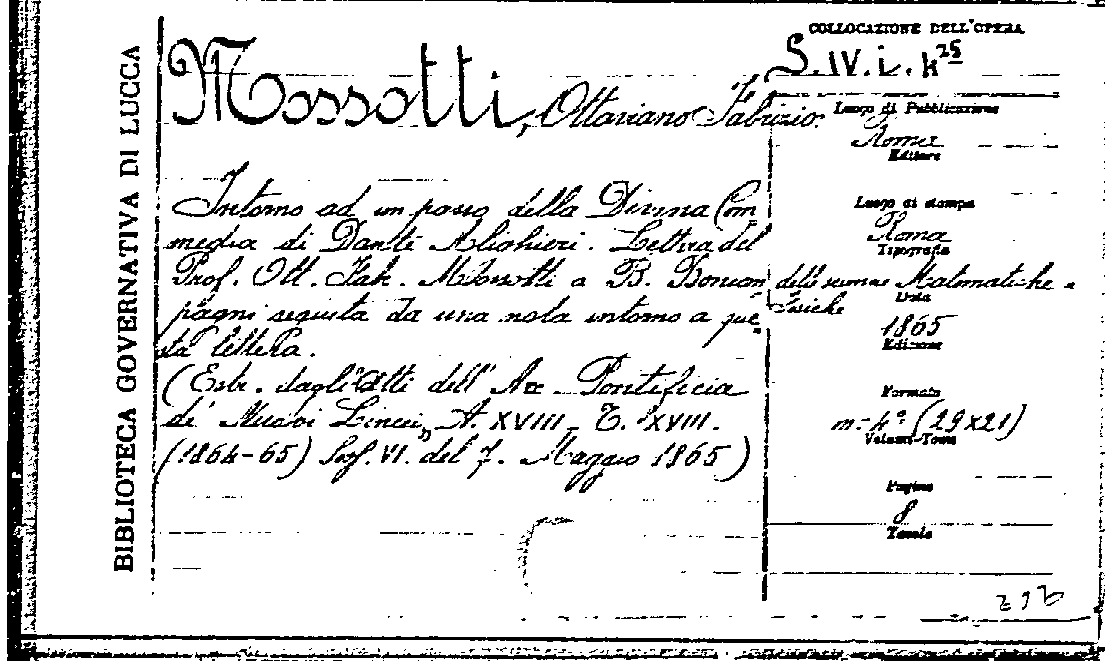 BIBLIOTECA GOVERNATIVA DI LUCCA
Mossotti, Ottaviano Fabrizio.
Intorno ad un passo della Divina Com
media di Dante Alighieri. Lettera del
Prof. Ott. Fab. Mossotti a B. Boncom
pagni seguita da una nota intorno a que
sta lettera.
(Estr. dagli Atti dell' Acc. Pontificia
de' Nuovi Lincei, A. XVIII - T. XVIII.
(1864-65) Sess. VI. del 7. Maggio 1865)
COLLOCAZIONE DELL'OPERA
S. IV. i. k 25
Luogo di Pubblicazione
Roma
Editore
Luogo di stampa
Roma
Tipografia
delle scienze Matematiche e
Fisiche
Data
1865
Edizione
Formato
in-4° (29x21)
Volumi-Tomo
Pagine
8
Tavole